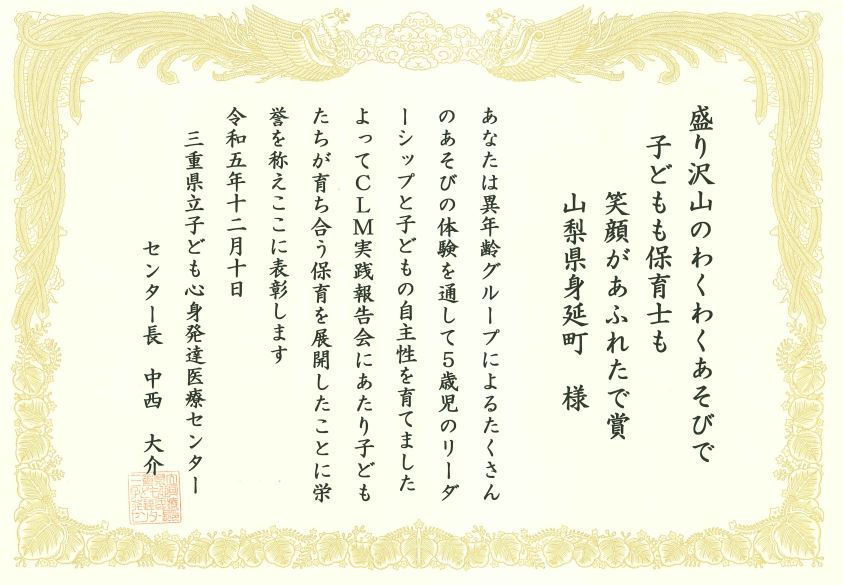 盛り沢山のわくわくあそびで
子どもも保育士も
笑顔があふれたで賞
山梨県身延町　様
あなたは異年齢グループによるたくさん
のあそびの体験を通して５歳児のリーダ
ーシップと子どもの自主性を育てました
よってＣＬＭ実践報告会にあたり子ども
たちが育ち合う保育を展開したことに栄
誉を称えここに表彰します
令和五年十二月十日
三重県立子ども心身発達医療センター
センター長　中西　大介